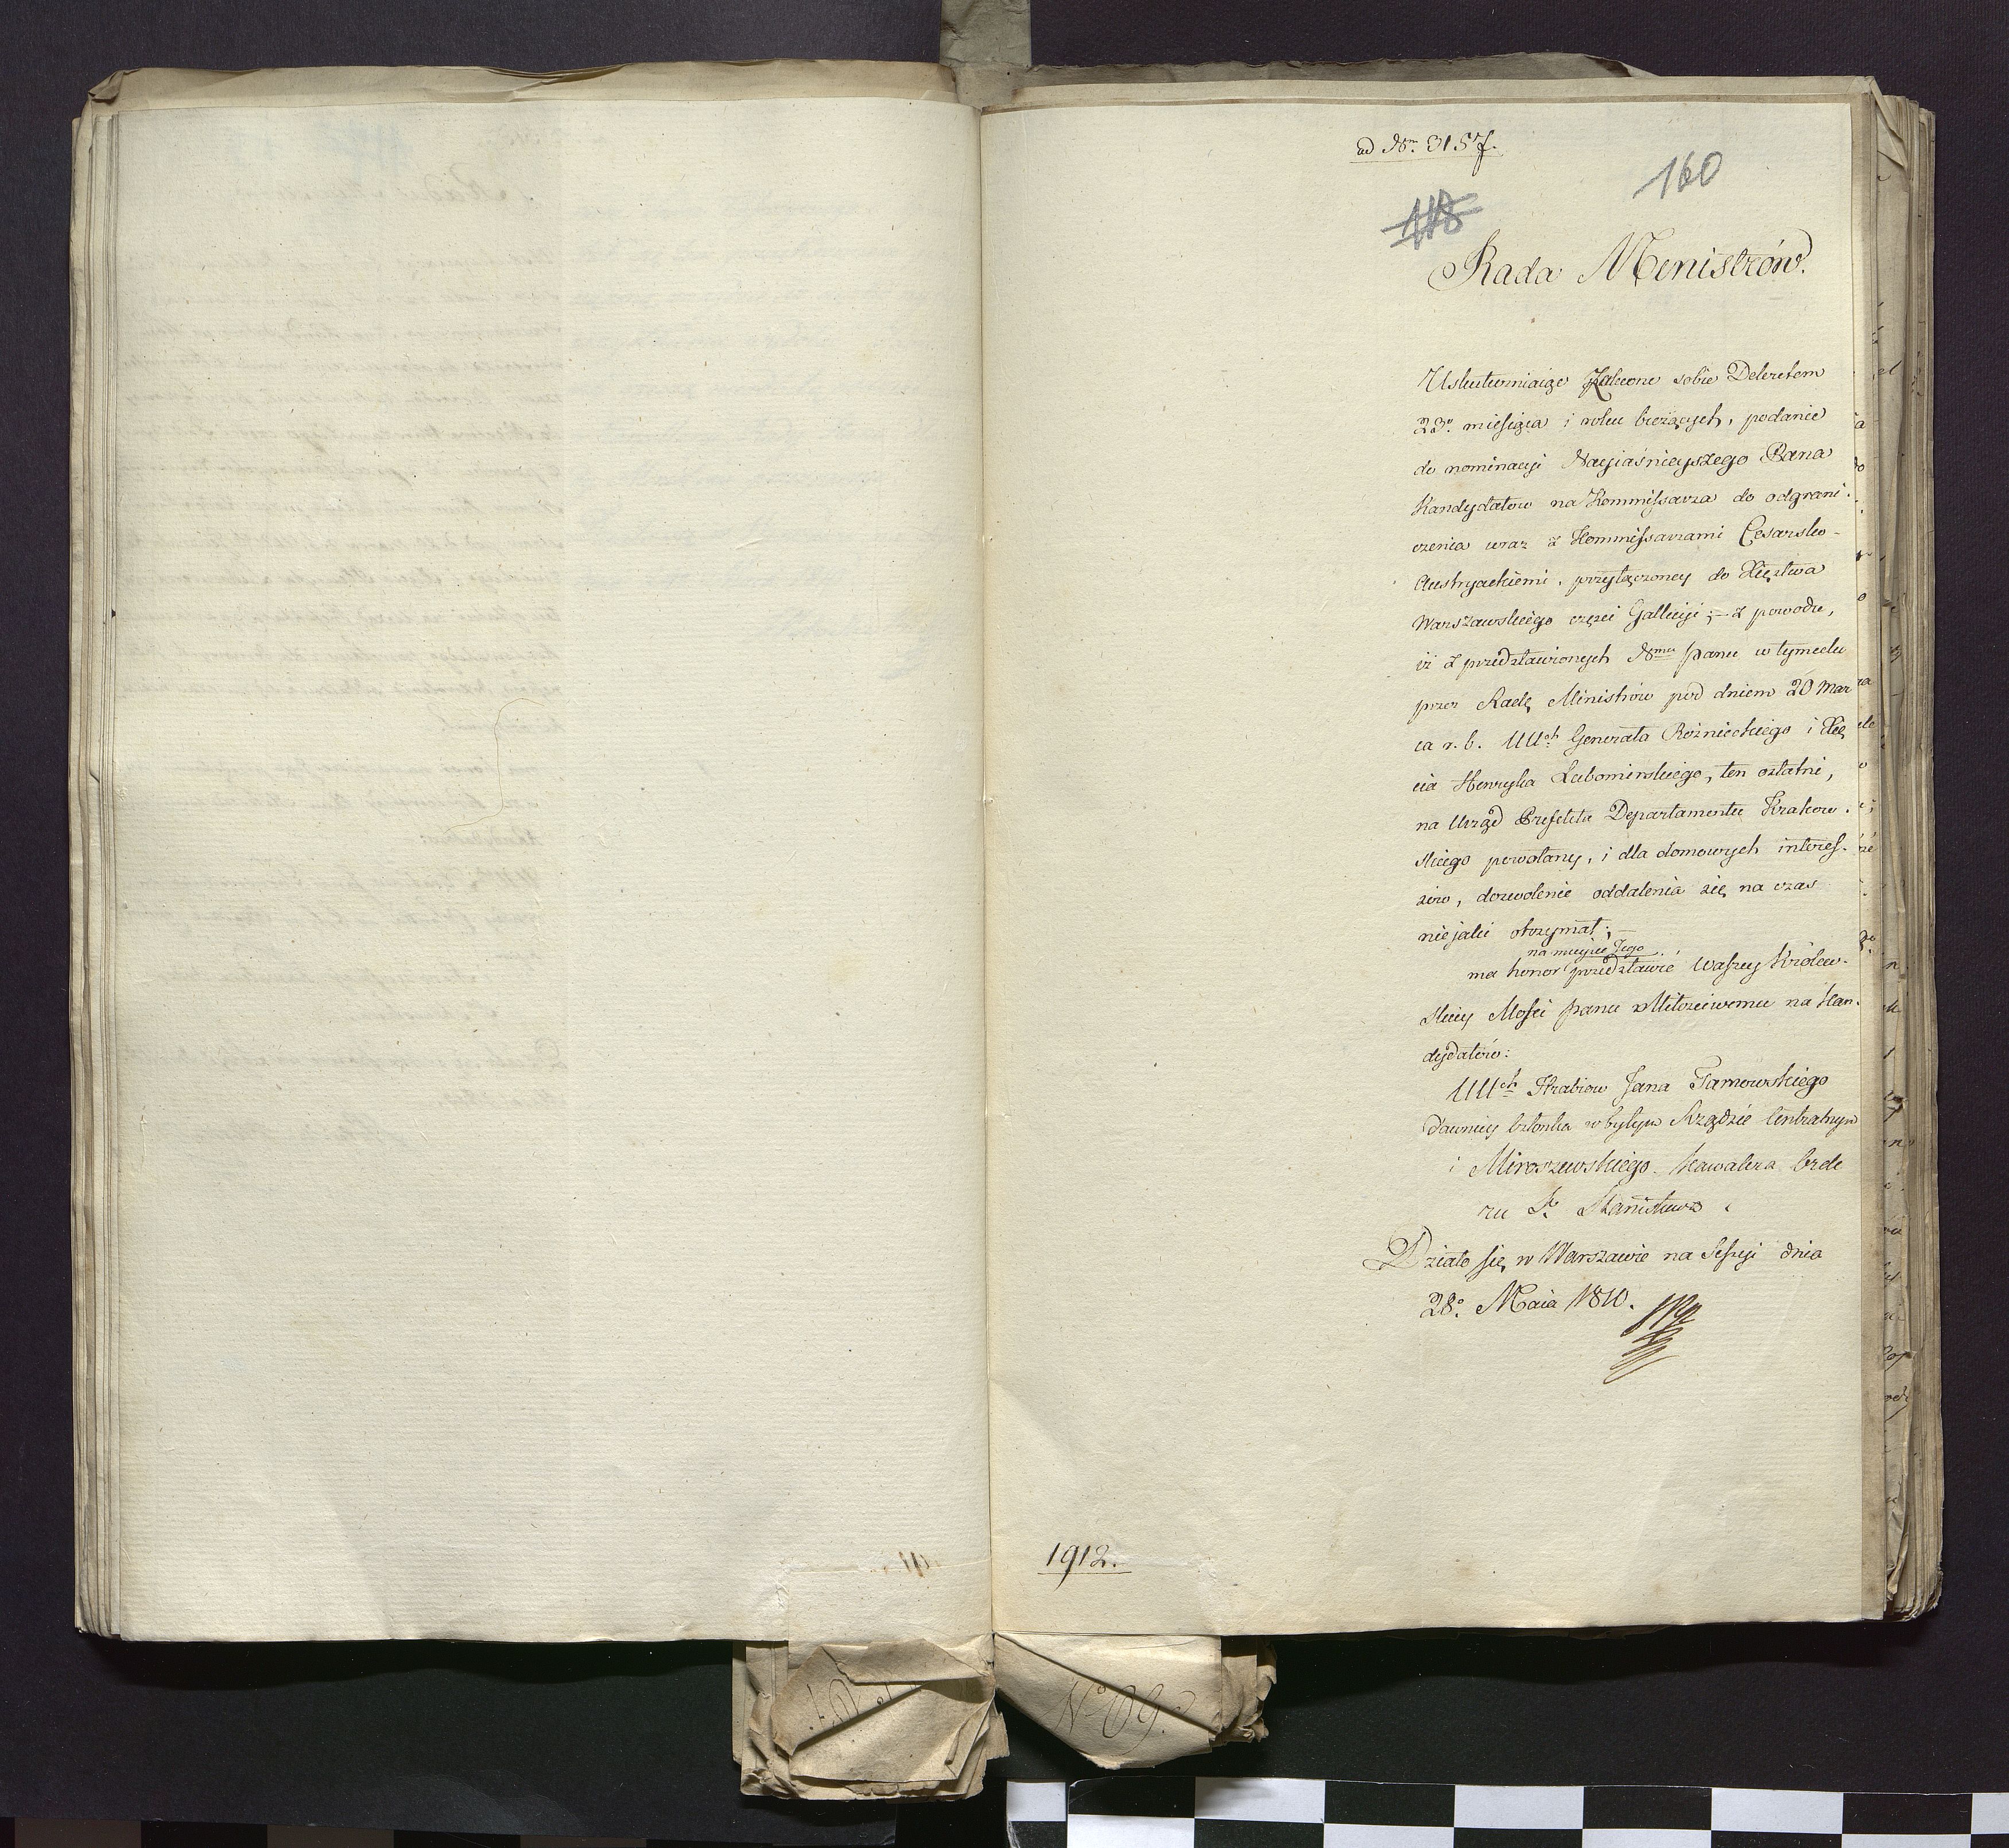 ad Nrm 3157.
118
160
Rada Ministrów.
Uskuteczniaiąc Zalecone sobie Dekretem
23o. miesiąca i roku bieżących, podanie
do nominacyi Nayiaśnieyszego Pana
Kandydatow na Kommissarza do odgrani-
czenia wraz z Kommissarzami Cesarsko-
Austryackiemi, przyłączoney do Xięztwa
Warszawskiego części Gallicyi; – z powodu,
iż z przedstawionych Nmu panu w tymcelu
przez Radę Ministrów pod dniem 20 Mar
ca r. b. UUch Generała Rożnieckiego i Xię
cia Henryka Lubomirskiego, ten ostatni,
na Urząd Prefekta Departamentu Krakow-
skiego powołany, i dla domowych interes-
sów, dozwolenie oddalenia się na czas
niejaki otrzymał; –
na mieysce Jego
ma honor przedstawić Waszey Królew-
skiey Mości panu Miłościwemu na Kan-
dydatów:
UUch Hrabiow Jana Tarnowskiego
dawniey Członka w byłym Rządzie Centralnym
i Miroszewskiego Kawalera Orde
ru St. Stanisława.
Działo się w Warszawie na Sessyi dnia
28o. Maia 1810.
1912.
No 09.